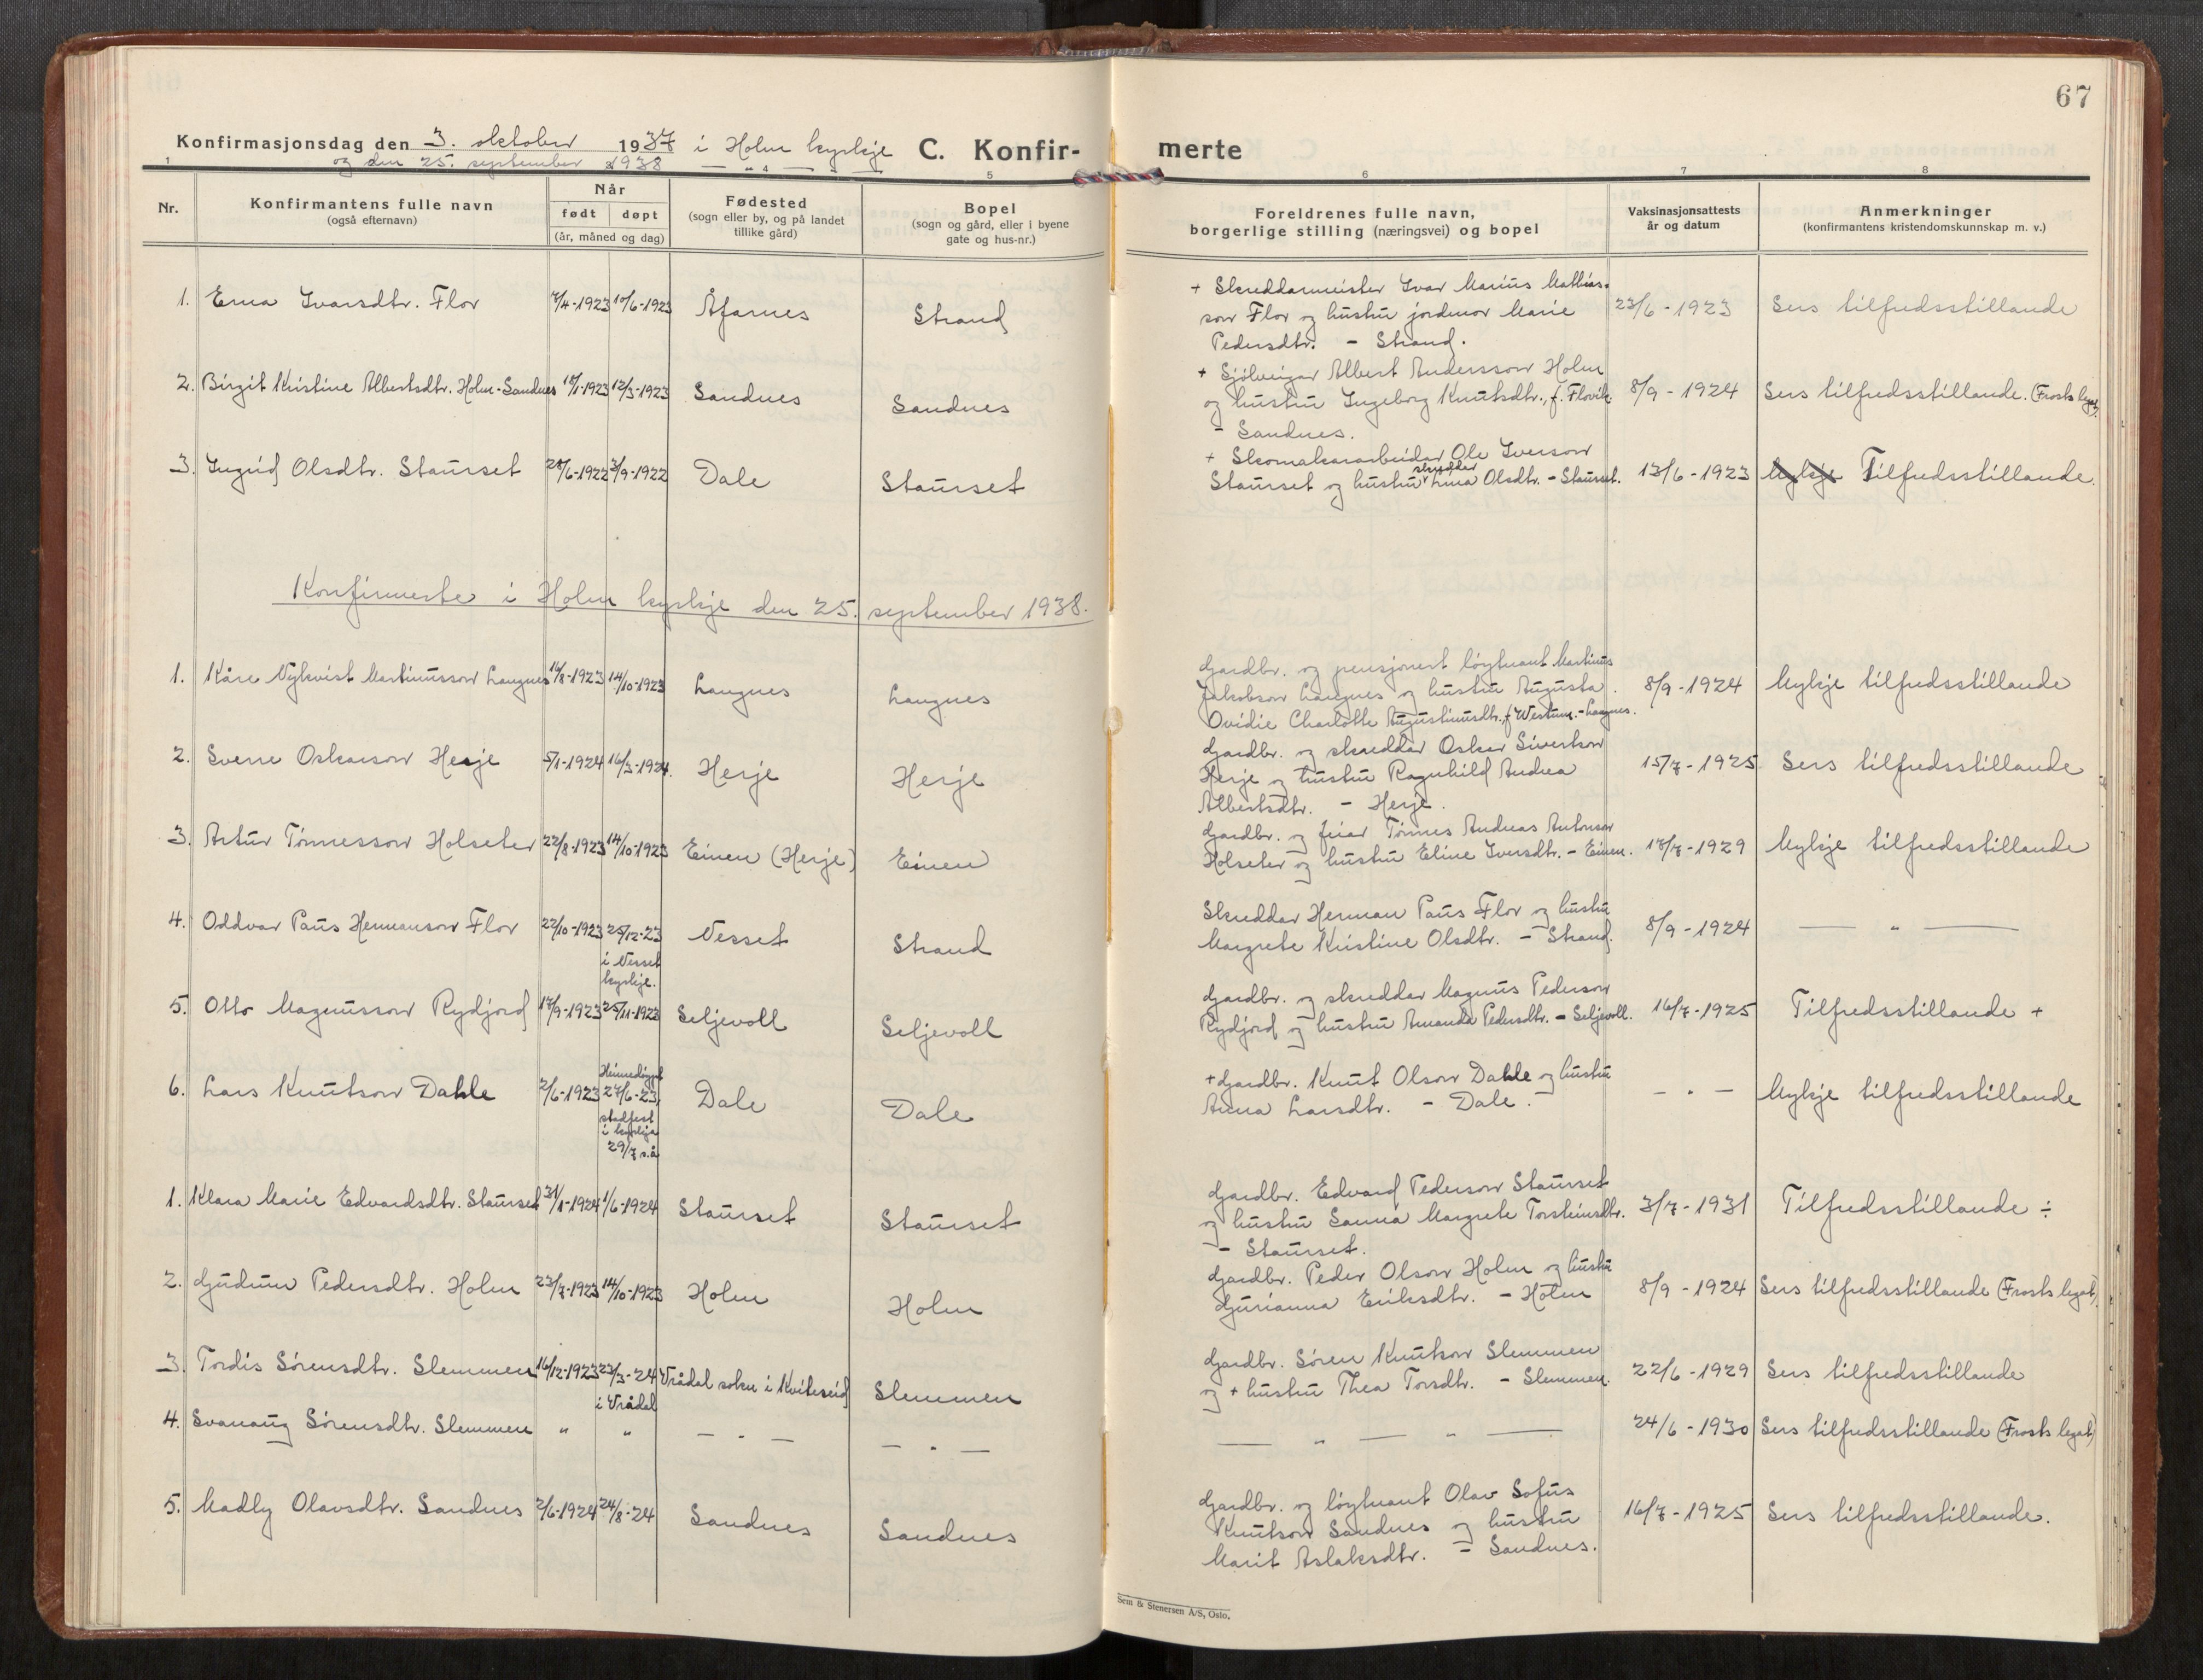 67
Konfirmasjonsdag den 3. oktober 1937 i Holm kyrkje C. Konfir- merte
og den 25. september 1938 — " — " —
1 4 5 6 7 8
Nr. Konfirmantens fulle navn (også efternavn) Når født døpt (år, måned og dag) Fødested (sogn eller by, og på landet tillike gård) Bopel (sogn og gård, eller i byene gate og hus-nr.) Foreldrenes fulle navn, borgerlige stilling (næringsvei) og bopel Vaksinasjonsattests år og datum Anmerkninger (konfirmantens kristendomskunnskap m. v.)
1. Erna Ivarsdtr. Flor 7/4-1923 10/6-1923 Åfarnes Strand
+ Skreddarmeister Ivar Marius Mathias-
son Flor og hustru jordmor Marie
Pedersdtr. - Strand.
23/6 - 1923 Sers tilfredsstillande
2. Birgit Kristine Albertsdtr. Holm-Sandnes 18/1-1923 12/3-1923 Sandnes Sandnes
+ Sjølveigar Albert Andersson Holm
og hustru Ingeborg Knutsdtr., f. Flovik.
- Sandnes.
8/9 - 1924 Sers tilfredsstillande. (Frosts legat)
3. Ingrid Olsdtr. Staurset 28/6-1922 3/9-1922 Dale Staurset
+ Skomakararbeidar Ole Iverson
Staurset og hustru skredder Lina Olsdtr. - Staurset.
13/6 - 1923 Mykje Tilfredsstillande.
Konfirmerte i Holm kyrkje den 25. september 1938.
1. Kåre Nykvist Martinusson Langnes 16/8-1923 14/10-1923 Langnes Langnes
Gardbr. og pensjonert løytnant Martinus
Jakobson Langnes og hustru Augusta
Ovidie Charlotte Augustinusdtr. f Westum. - Langnes.
8/9 - 1924 Mykje tilfredsstillande
2. Sverre Oskarson Herje 5/1-1924 16/3-1924. Herje Herje
Gardbr. og skreddar Oskar Sivertson
Herje og hustru Ragnhild Andrea
Albertsdtr. - Herje.
15/7 - 1925 Sers tilfredsstillande
3. Artur Tønnesson Holseter 22/8-1923 14/10-1923 Einen (Herje) Einen
Gardbr. og feiar Tønnes Andreas Antonson
Holseter og hustru Eline Iversdtr. - Einen.
17/7 - 1929 Mykje tilfredsstillande
4. Oddvar Paus Hermanson Flor 22/10-1923 25/12-23 i Nesset kyrkje. Nesset Strand
Skreddar Herman Paus Flor og hustru
Margrete Kristine Olsdtr. - Strand.
8/9 - 1924 — " —
5. Otto Magnusson Rydjord 17/9-1923 25/11-1923 Seljevoll Seljevoll
Gardbr. og skreddar Magnus Pederson
Rydjord og hustru Amanda Pedersdtr. - Seljevoll.
16/7 - 1925 Tilfredsstillande +
6. Lars Knutson Dahle 2/6-1923 Heimedøypt 27/6-23. stadfest i kyrkja 29/7 s.å Dale Dale
+ Gardbr. Knut Olson Dahle og hustru
Anna Larsdtr. - Dale.
— " — Mykje tilfredsstillande
1. Klara Marie Edvardsdtr. Staurset 31/1-1924 1/6-1924 Staurset Staurset
Gardbr. Edvard Pederson Staurset
og hustru Sanna Margrete Torsteinsdtr.
- Staurset.
3/7 - 1931 Tilfredsstillande ÷
2. Gudrun Pedersdtr. Holm 23/7-1923 14/10-1923 Holm Holm
Gardbr. Peder Olson Holm og hustru
Gurianna Eriksdtr. - Holm
8/9 - 1924 Sers tilfredsstillande (Frosts legat)
3. Tordis Sørensdtr. Slemmen 16/12-1923 23/3-24 i Vrådal Vrådal sokn i Kviteseid Slemmen
Gardbr. Søren Knutson Slemmen
og + hustru Thea Torsdtr. - Slemmen.
22/6 - 1929 Sers tilfredsstillande
4. Svanaug Sørensdtr. Slemmen " " — " — — " — — " — " — 24/6 - 1930 Sers tilfredsstillande (Frosts legat)
5. Madly Olavsdtr. Sandnes 2/6-1924 24/8-24 Sandnes Sandnes
Gardbr. og løytnant Olav Sofus
Knutson Sandnes og hustru
Marit Aslaksdtr. - Sandnes.
16/7 - 1925 Sers tilfredsstillande.
Sem & Stenersen A/S, Oslo.